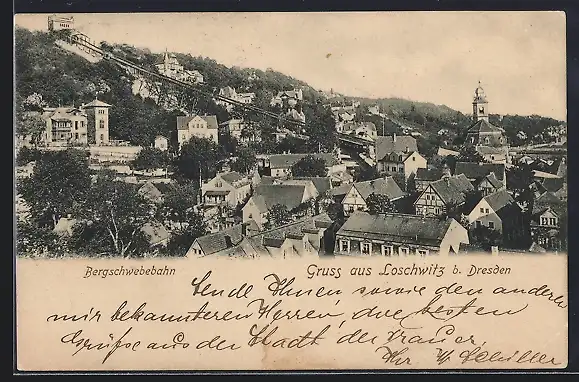 Bergschwebebahn
Gruss aus Loschwitz b. Dresden
Sende Ihnen sowie den anderen
mir bekannteren Herren, die besten
Grüsse aus der Stadt der Trauer,
Ihr W. Schiller